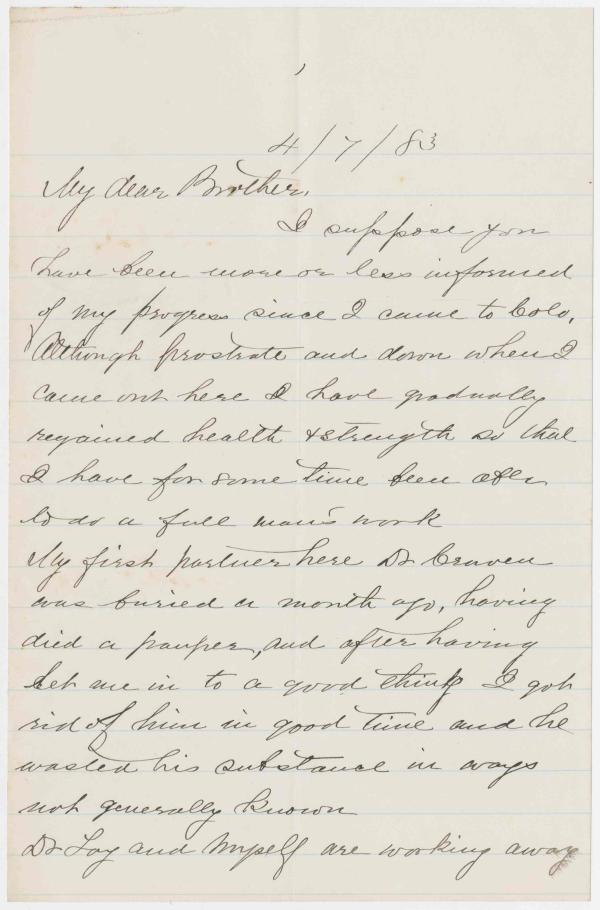 4/7/83
My dear Brother,
I suppose you
have been more or less informed
of my progress since I came to Colo,
Although prostrate and down when I
came out here I have gradually
regained health & strength so that
I have for some time been able
to do a full man's work
My first partner here Dr Craven
was buried a month ago, having
died a pauper, and after having
let me in to a good thing I got
rid of him in good time and he
wasted his substance in ways
not generally known
Dr Loy and Myself are working away